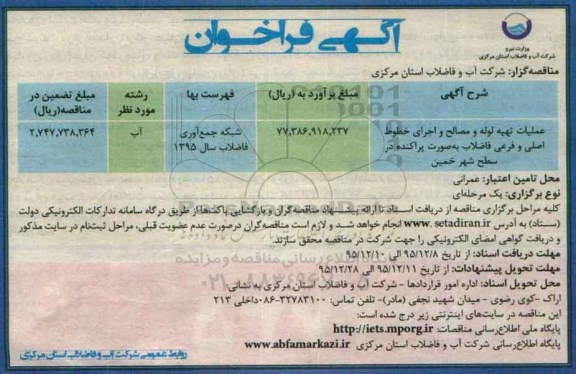 آگهی فراخوان
وزارت نیرو
شرکت آب و فاضلاب استان مرکزی
مناقصه‌گزار: شرکت آب و فاضلاب استان مرکزی
شرح آگهی
مبلغ برآورد به (ریال)
فهرست بها
رشته مورد نظر
مبلغ تضمین در مناقصه(ریال)
عملیات تهیه لوله و مصالح و اجرای خطوط
اصلی و فرعی فاضلاب به‌صورت پراکنده در
سطح شهر خمین
۷۷,۳۸۶,۹۱۸,۲۳۷
شبکه جمع‌آوری
فاضلاب سال ۱۳۹۵
آب
۲,۷۴۷,۷۳۸,۳۶۴
محل تامین اعتبار: عمرانی
نوع برگزاری: یک مرحله‌ای
کلیه مراحل برگزاری مناقصه از دریافت اسناد تا ارائه پیشنهاد مناقصه‌گران و بازگشایی پاکت‌ها از طریق درگاه سامانه تدارکات الکترونیکی دولت
(ستاد) به آدرس www.setadiran.ir انجام خواهد شد و لازم است مناقصه‌گران درصورت عدم عضویت قبلی، مراحل ثبت‌نام در سایت مذکور
و دریافت گواهی امضای الکترونیکی را جهت شرکت در مناقصه محقق سازند.
مهلت دریافت اسناد: از تاریخ ۹۵/۱۲/۸ الی ۹۵/۱۲/۱۰
مهلت تحویل پیشنهادات: از تاریخ ۹۵/۱۲/۱۱ الی ۹۵/۱۲/۲۸
محل تحویل اسناد: اداره امور قراردادها - شرکت آب و فاضلاب استان مرکزی به نشانی:
اراک -کوی رضوی - میدان شهید نجفی (مادر)- تلفن تماس: ۳۲۷۸۳۱۰۰-۰۸۶ داخلی ۲۱۳
این مناقصه در سایت‌های اینترنتی زیر درج شده است:
پایگاه ملی اطلاع‌رسانی مناقصات: http://iets.mporg.ir
پایگاه اطلاع‌رسانی شرکت آب و فاضلاب استان مرکزی www.abfamarkazi.ir
روابط عمومی شرکت آب و فاضلاب استان مرکزی